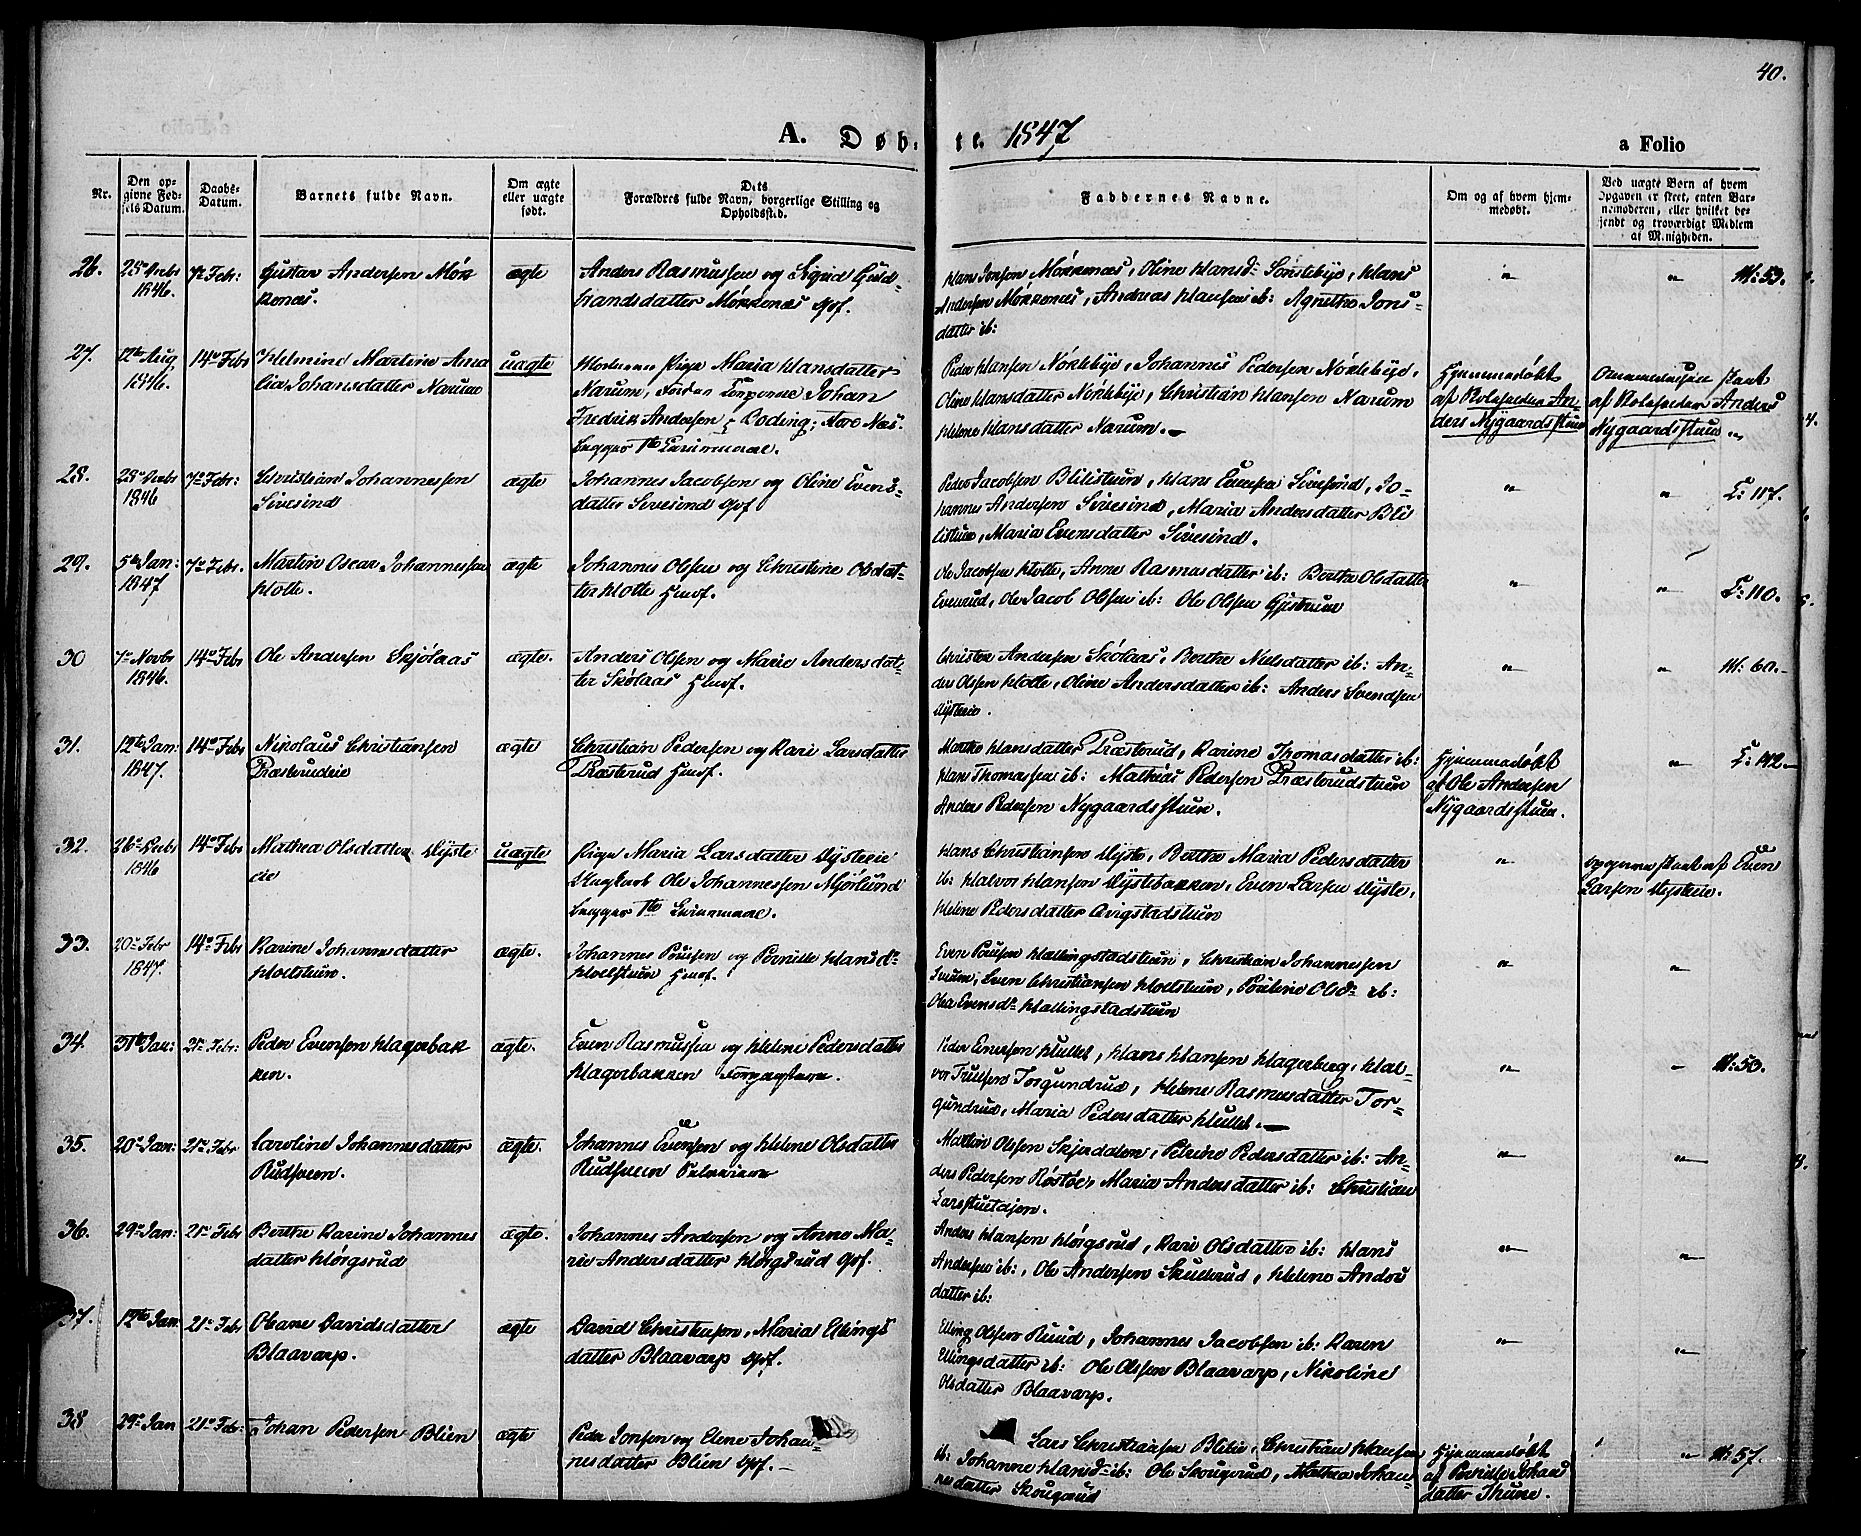 40.
A. Døb- te. 1847
a Folio
Nr.
Den opgivne Fødsels Datum.
Daabs-Datum.
Barnets fulde Navn.
Om ægte eller uægte født.
Dets Forældres fulde Navn, borgerlige Stilling og Opholdssted.
Faddernes Navne.
Om og af hvem hjemmedøbt.
Ved uægte Børn af hvem Opgaven er skeet, enten Barnemoderen, eller hvilket bekjendt og troværdigt Medlem af Menigheden.
26. 25de 1846. 7de Febr: Gustav Andersen Møkkenæs. ægte
Anders Rasmussen og Sigrid Guldbrandsdatter Møkkenæs Gbf.
Hans Jonsen Møkkenæs, Oline Hansd: Sønsteby, Hans
Andersen Møkkenæs, Andreas Hansen ib: Agnethe Jons-
datter ib:
" " M: 53.
27. 12te Aug 1846. 14de Febr Helmine Martine Amalia Johansdatter Narum uægte
Moderen Pige Maria Hansdatter
Narum, Johan
Fredrik Andersen
begges 1te Leiermaal.
Peder Hansen Nøkleby, Johannes Pedersen Nøkleby,
Oline Hansdatter Nøkleby, Christian Hansen Narum
Helene Hansdatter Narum.
Hjemmedøbt
af Anders Nygaardsstuen
skeet
af Anders
Nygaardsstuen
28. 1846 7de Febr: Christian Johannessen Sivesind ægte
Johannes Jacobsen og Oline Evens-
datter Sivesind Gbf
Peder Jacobsen Blilistuen, Hans Evensen Sivesind, Jo-
hannes Andersen Sivesind, Maria Andersdatter Bli
listuen, Maria Evensdatter Sivesind.
" " L: 117.
29. 5te Jan: 1847 7de Febr. Martin Oscar Johannessen Hotte. ægte
Johannes Olsen og Christine Olsdat-
ter Hotte Husf.
Ole Jacobsen Hotte, Anne Rasmusdatter ib: Berthe Olsdatter
Evenrud, Ole Jacob Olsen ib: Ole Olsen Gjestrum
" " L: 110.
30 7de Novbr 1846. 14de Febr Ole Andersen Skjølaas ægte.
Anders Olsen og Marie Andersdat-
ter Skølaas Husf.
Christen Andersen Skølaas, Berthe Nielsdatter ib: An-
ders Olsen Hotte, Oline Andersdatter ib: Anders Svendsen
" " M: 60.
31. 12te Jan: 1847. 14de Febr Nikolaus Christiansen Præsterudeie ægte
Christian Pedersen og Kari Larsdatter
Præsterud Husf.
Marthe Hansdatter Præsterud, Karine Thomasdatter ib:
Hans Thomassen ib: Mathias Pedersen Præsterudstuen
Anders Pedersen Nygaardsstuen.
Hjemmedøbt
af Ole Andersen
Nygaardsstuen.
" L: 142.
32. 26de Decbr 1846 14de Febr Mathea Olsdatter Hysteeie uægte
Pige Maria Larsdatter Hysteeie
Ungkarl Ole Johannessen Mjørlund
begges 1te Leiermaal.
Hans Christiansen Hyste, Berthe Maria Pedersdatter
ib: Halvor Hansen Hystebakken, Even Larsen Hyste,
Helene Pedersdatter
" skeet af Even
Larsen Hysteeie.
33. 20de Febr 1847. 14de Febr Karine Johannesdatter Holtstuen. ægte.
Johannes Poulsen og Pernille Hansdr
Holtstuen Husf.
Even Poulsen Hallingstadstuen, Christian Johannessen
Even Christiansen Holtstuen, Pauline Olsdr ib:
Olea Evensdr Hallingstadstuen
" "
34. 31te Jan: 21de Febr: Peder Evensen Hagerbakken. ægte.
Even Rasmussen og Helene Pedersdatter
Hagerbakken
Peder Evensen Hullet, Hans Hansen Hagerberg, Hal-
vor Truelsen Torgundrud, Helene Rasmusdatter Tor-
gundrud, Maria Pedersdatter Hullet.
" " M: 50.
35. 20de Jan: 21de Febr Caroline Johannesdatter Rudsveen. ægte.
Johannes Evensen og Helene Olsdatter
Rudsveen
Martin Olsen Skjerdalen, Petrine Pedersdatter ib: An-
ders Pedersen Røstøe, Maria Andersdatter ib: Christian
" "
36. 29de Jan: 21de Febr Berthe Karine Johannesdatter Hørgsrud ægte.
Johannes Andersen og Anne Ma-
rie Andersdatter Hørgsrud Gbf.
Anders Hansen Hørgsrud, Kari Olsdatter ib: Hans
Andersen ib:, Ole Andersen Skullerud, Helene Anders
datter ib:
" "
37. 12te Jan 21de Febr Oleane Davidsdatter Blaavarp. ægte
David Christiansen, Maria Ellings
datter Blaavarp Gbf.
Elling Olsen Ruud, Johannes Jacobsen ib: Karen
Ellingsdatter ib: Ole Olsen Blaavarp, Nikoline
Olsdatter Blaavarp.
" "
38 29de Jan 21de Febr: Johan Pedersen Blien ægte
Peder Jonsen og Elene Johan-
nesdatter Blien Gbf.
Lars Christiansen Blilie, Christian Hansen
ib: Johanne Hansdr ib: Ole Skougerud, Mathea Johan-
nesdatter Skougrud
Hjemmedøbt
af Pernille Johans
datter Thune.
" M: 57.